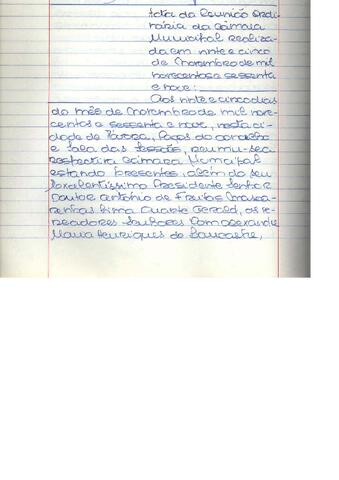 Acta da Reunião Ordi
nária da Câmara
Municipal realiza-
da em vinte e cinco
de Novembro de mil
novecentos e sessenta
e nove:
Aos vinte e cinco dias
do mês de Novembro de mil nove-
centos e sessenta e nove, nesta ci-
dade de Távora, Paços do Concelho
e sala das sessões, reuniu-se a
respectiva Câmara Municipal
estando presentes, além do seu
Excelentíssimo Presidente Senhor
Doutor António de Freitas
Lima Duarte Geraldo, os ve-
readores Senhores
Maria Henriques de Lancastre,